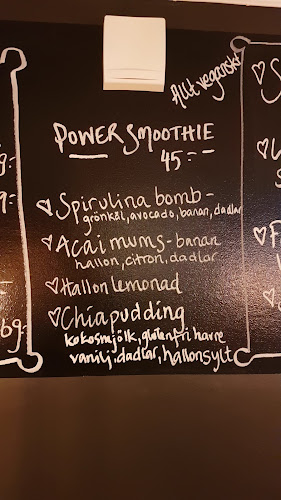 Allt veganskt
POWER SMOOTHIE
45:-
♡Spirulina bomb-
grönkål, avocado, banan, dadlar
♡Acai mums-banan
hallon, citron, dadlar
♡Hallonlemonad
♡Chiapudding
kokosmjölk, glutenfri havre
vanilj, dadlar, hallonsylt